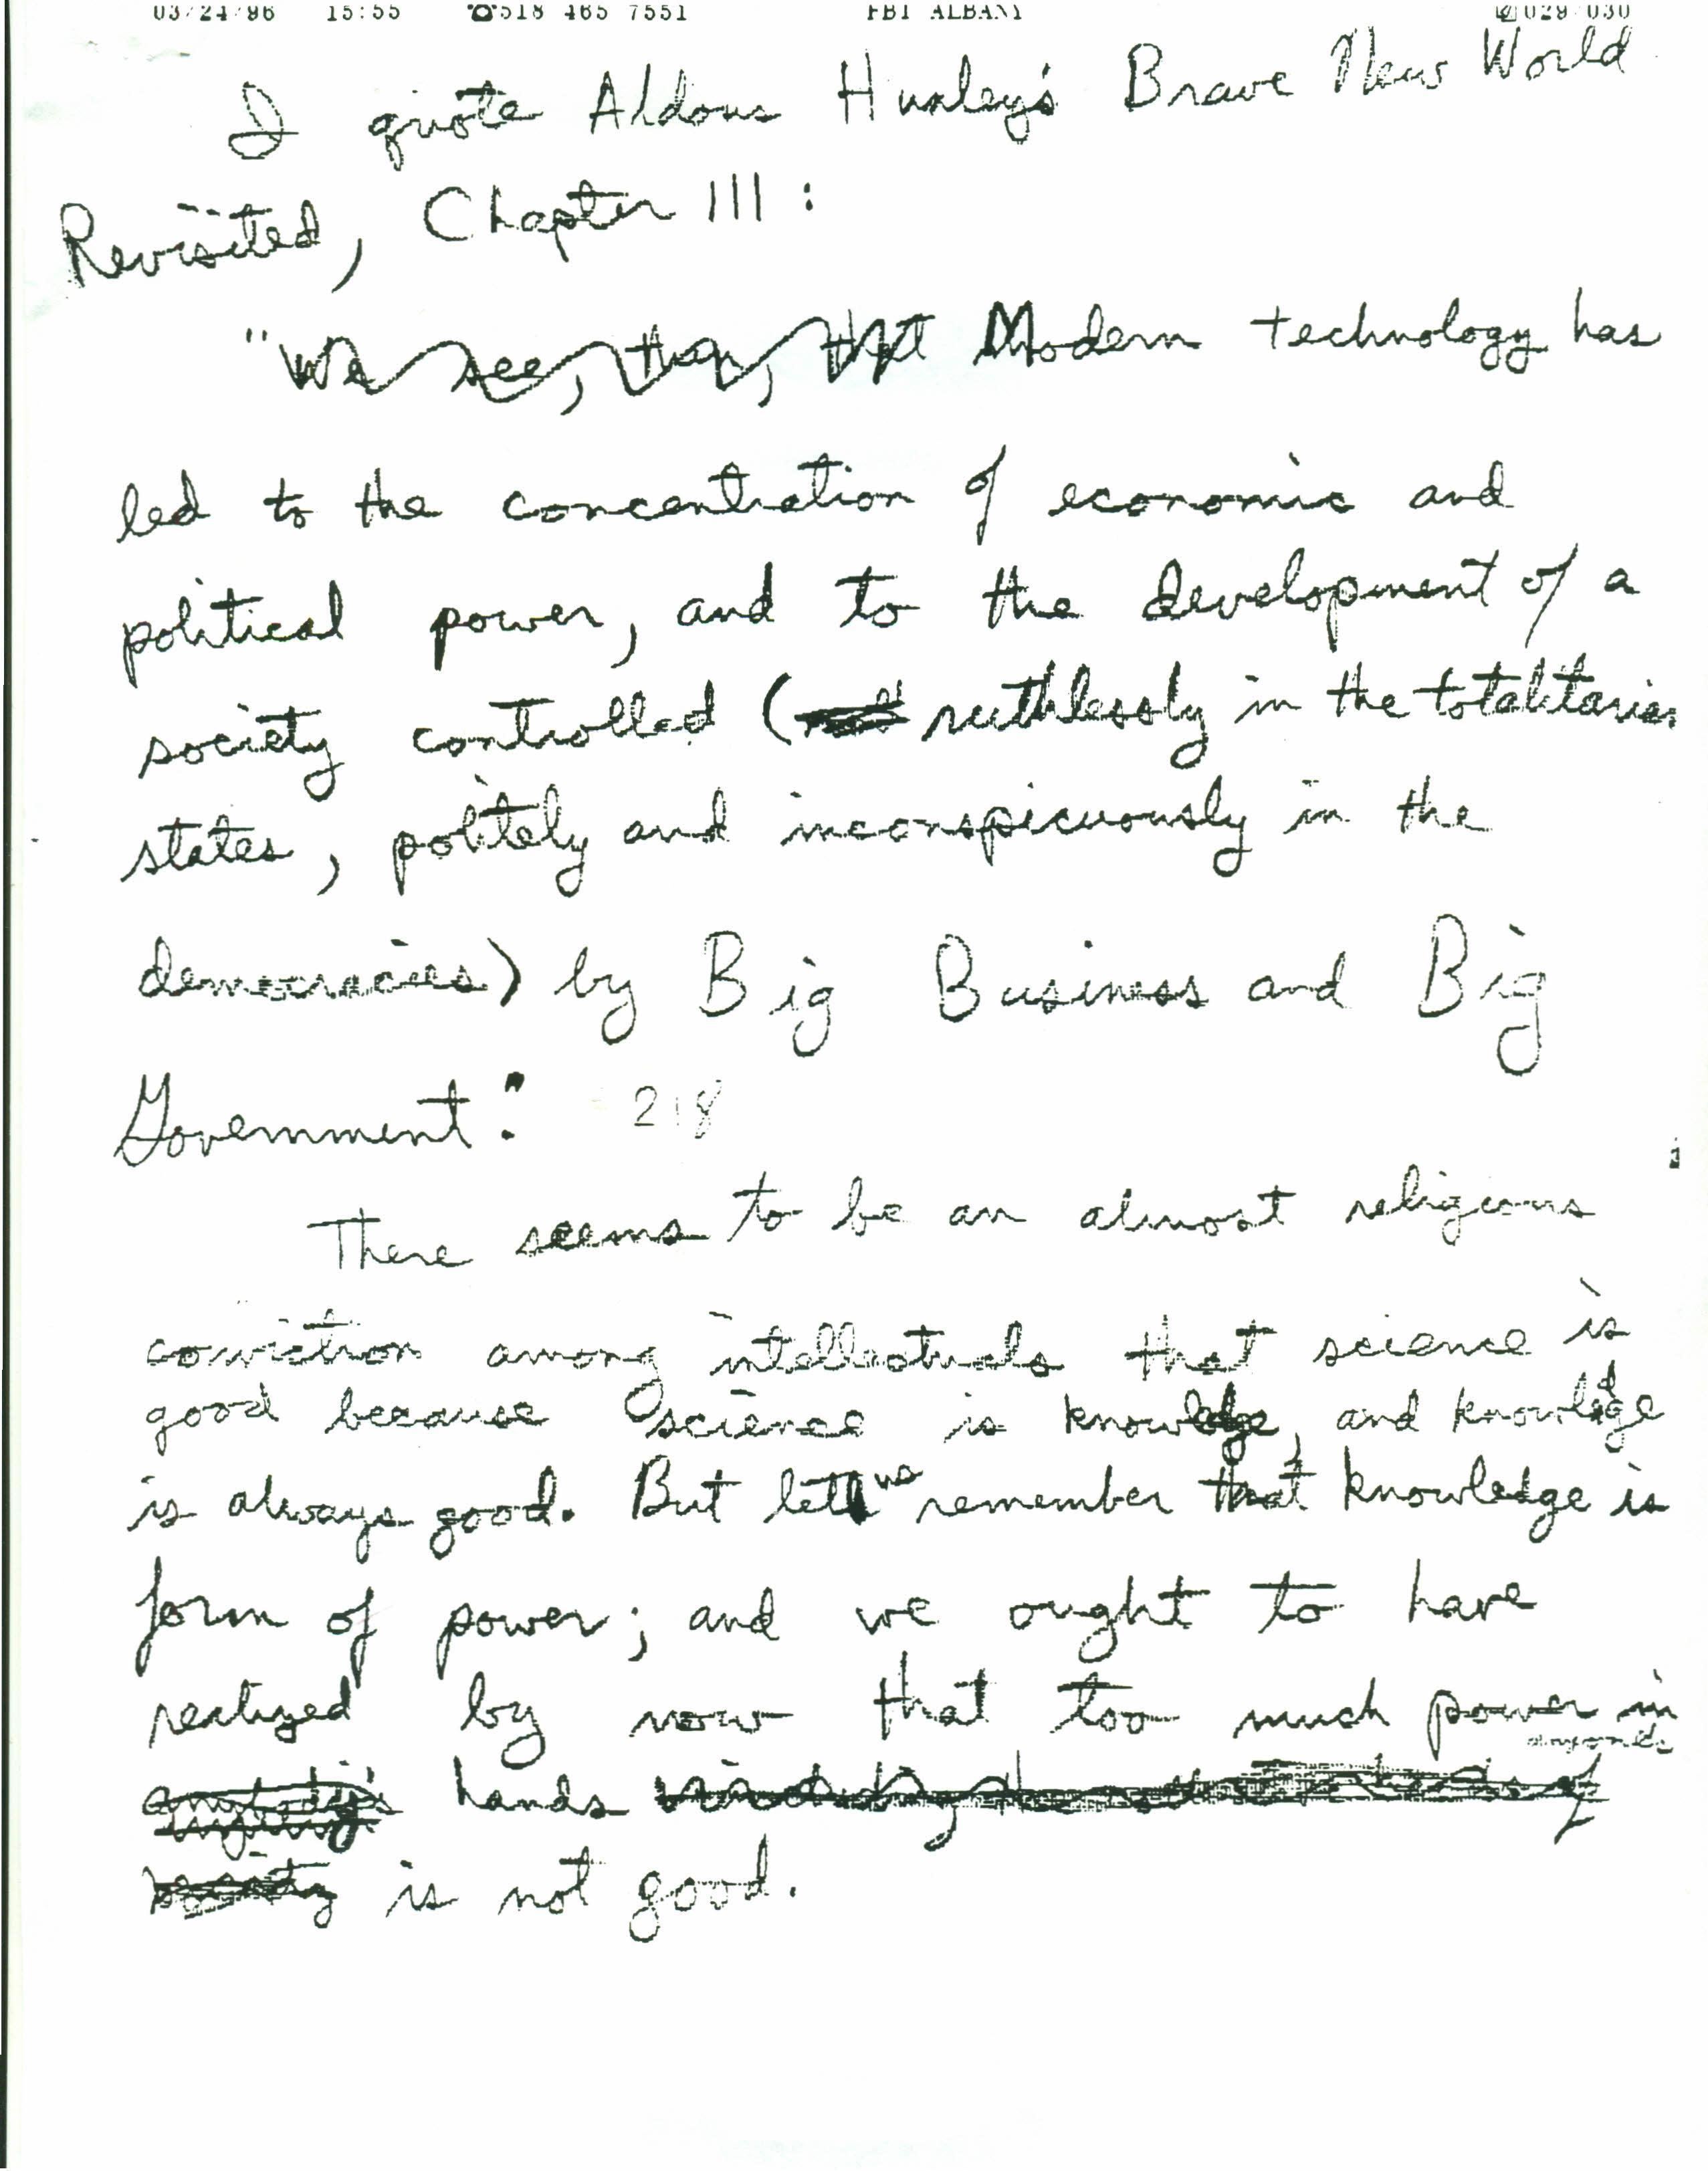 03/24/96 15:55 ☎518 465 7551 FBI ALBANY 029/030
I quote Aldous Huxley's Brave New World
Revisited, Chapter III:
"We see, then, that Modern technology has
led to the concentration of economic and
political power, and to the development of a
society controlled (ruthlessly in the totalitarian
states, politely and inconspicuously in the
democracies) by Big Business and Big
Government." 218
There seems to be an almost religious
conviction among intellectuals that science is
good because science is knowledge, and knowledge
is always good. But let us remember that knowledge is
form of power; and we ought to have
realized by now that too much power in
anyone's
hands
is not good.